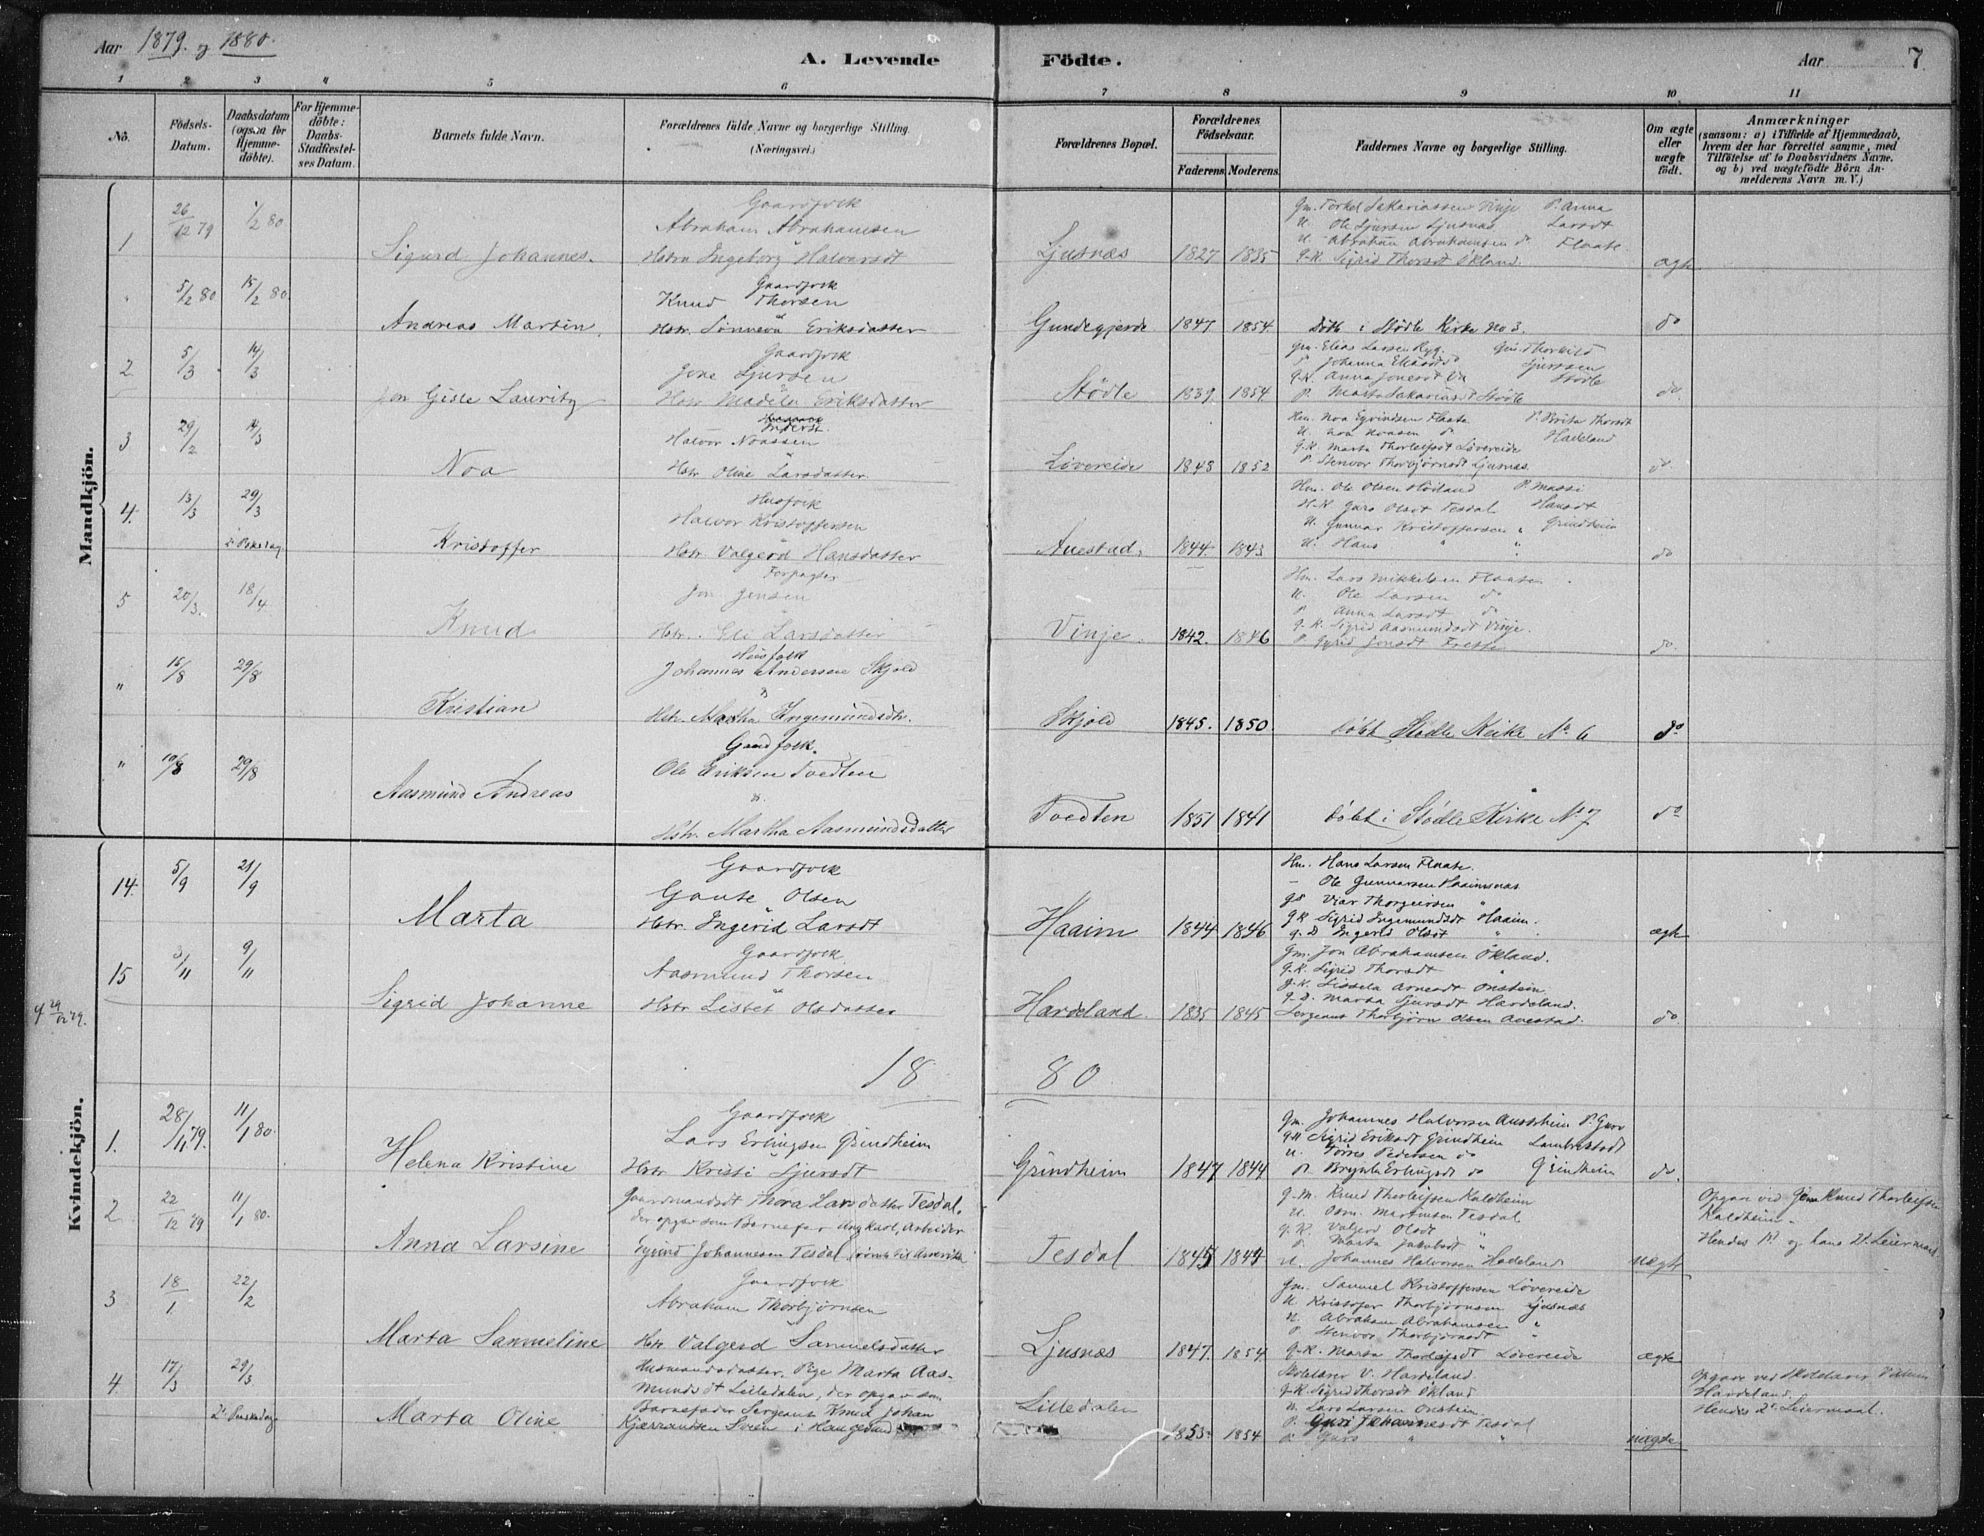 Aar 1879. og 1880.
A. Levende
Födte.
Aar
7
1 2 3 4 5 6 7 8 9 10 11
Nò.
Födsels-Datum.
Daabsdatum (ogsaa for Hjemme-döbte).
For Hjemme-döbte: Daabs-Stadfæstel-ses Datum.
Barnets fulde Navn.
Forældrenes fulde Navne og borgerlige Stilling. (Næringsvei.)
Forældrenes Bopæl.
Forældrenes Födselsaar.
Faderens. Moderens.
Faddernes Navne og borgerlige Stilling.
Om ægte eller uægte födt.
Anmærkninger
(saasom: a) i Tilfælde af Hjemmedaab, hvem der har forrettet samme, med Tilföielse af to Daabsvidners Navne, og b) ved uægtefödte Börn An-melderens Navn m. V.)
Mandkjön.
1 26/12 79 1/2 80. Sigurd Johannes.
Gaardfolk
Abraham Abrahamsen
Hstr Ingeborg Halvorsdt
Ljusnæs 1827 1835
Gm. Torkel Sakariassen Vinje P. Anna
U. Ole Sjursen Ljusnæs Larsdt
U. Abraham Abrahamsen do Flaate.
G.K. Sigrid Thorsdt Økland.
ægte
" 5/2 80 15/2 80. Andreas Martin.
Gaardfolk
Knud Thorsen
Hstr. Sønneva Eriksdatter
Gundegjerde 1847 1854 Døbt i Stødle Kirke No 3. do
2 5/3 14/3 Jon Gisle Lauritz
Gaardfolk
Jone Sjursen
Hstr Madela Eriksdatter
Stødle 1839 1854
Gm. Elias Larsen Ryg. Gm. Thorkild
P. Johanna Eliasdt Sjurssen
G.K. Anna Jonesdt Stødle
P. Marta Sakariasdt Stødle
do
3 29/2 14/3 Noa
Inderst.
Halvor Noassen
Hstr Oline Larsdatter.
Løvereide 1848 1852
Hm. Noa Eyvindsen Flaate P. Brita Thorsdt
U. Noa Noasen do Hadeland
G.K. Marta Thorleifsdt Løvereide
P. Stenvor Thorbjørnsdt Ljusnæs.
do
4. 13/3 29/3 2. Paaskedag Kristoffer
Husfolk
Halvor Kristoffersen
Hstr. Valgerd Hansdatter
Auestad. 1844. 1843
Hm. Ole Olsen Høiland P. Massi
H.K. Guro Olsdt Tesdal Hansdt
U. Gunnar Kristoffersen " Grindheim
U. Hans " "
do
5 20/3 18/4 Knud
Forpagter
Jon Jensen
Hstr. Eli Larsdatter
Vinje. 1842. 1846
Hm. Lars Mikkelsen Flaaten
U. Ole Larsen do
P. Anna Larsdt do
G.K. Sigrid Aasmundsdt Vinje.
P. Gyrid Jonsdt
do
" 16/8 29/8 Kristian
Husfolk
Johannes Andersen Skjold
Hstr. Martha Ingemundsdtr.
Skjold 1845. 1850. Døbt Stødle Kirke No 6 do
" 10/8 29/8 Aasmund Andreas
Gaardfolk.
Ole Eriksen Tvedten
Hstr. Martha Aasmundsdatter
Tvedten 1851 1841 Døbt i Stødle Kirke No 7 do
14. 5/9 21/9 Marta
Gaardfolk
Gaute Olsen
Hstr. Ingerid Larsdt
Haaim 1844 1846
Hm. Hans Larsen Flaate.
– Ole Gunnarsen Haaimsnæs.
GS Viar Thorgeirsen "
GK Sigrid Ingemundsdt Haaim.
G.D Ingerid Olsdt "
ægte
15 3/11 9/11 Sigrid Johanne
Gaardfolk.
Aasmund Thorsen
Hstr Lisbet Olsdatter
Hardeland. 1835 1845
Gm. Jon Abrahamsen Økland.
G.K. Sigrid Thorsdt "
G.K. Sissela Arnesdt Onstein.
G.D. Marta Sjursdt Hardeland.
Sergeant Thorbjørn Olsen Auestad.
do.
18 80
Kvindekjön.
1. 28/11 79. 11/1 80. Helena Kristine
Gaardfolk
Lars Erlingsen Grindheim
Hstr Kristi Sjursdt
Grindheim 1847 1844
Gm. Johannes Halvorsen Ausshein P. Guro
GK Sigrid Eriksdt Grindheim Lambrektsdt
U. Tørres Pedersen do
P. Brynla Erlingsdt do Grindheim
do.
2 22/12 79 11/1 80. Anna Larsine
Gaardmandsdt Thora Larsdatter Tesdal.
der opgav som Barnefar Ungkarl, Arbeider
Eyvind Johannesen Tesdal, rømt til Amerika
Tesdal 1845 1844
G.m. Knud Thorleifsen Kaldheim
U. Osm. Martinsen Tesdal
G.K. Valgerd Olsdt "
P. Marta Jakobsdt "
U. Johannes Halvorsen Hadeland
uægte
Opgav ved Gm Knud Thorleifsen
Kaldheim.
Hendes 1ste og hans 2t Leiermaal
3 18/1 22/2 Marta Sammeline
Gaardfolk
Abraham Thorbjørnsen
Hstr Valgerd Samuelsdatter
Ljusnæs 1847. 1854
Gm. Samuel Kristoffersen Løvereide
U Kristofer Thorbjørnsen Ljusnæs
U. Abraham Abrahamsen "
P. Stenvor Thorbjørnsdt "
G.K. Marta Thorleifsdt Løvereide
ægte
4 17/3 29/3 2. Paaskedag Marta Oline
Husmandsdatter, Pige Marta Aas-
mundsdt Lilledalen, der opgav som
Barnefader Sergeant Knud Johan
Kjærrandsen Søien i Haugesund
Lilledalen 1855. 1854
Skolelærer V. Hardeland.
G.K. Sigrid Thorsdt Økland
U. Lars Larsen Onstein.
P. Guri Johannesdt Tesdal
P. Guro " "
uægte
Opgave ved Skolelærer
Hardeland.
Hendes 2t Leiermaal.